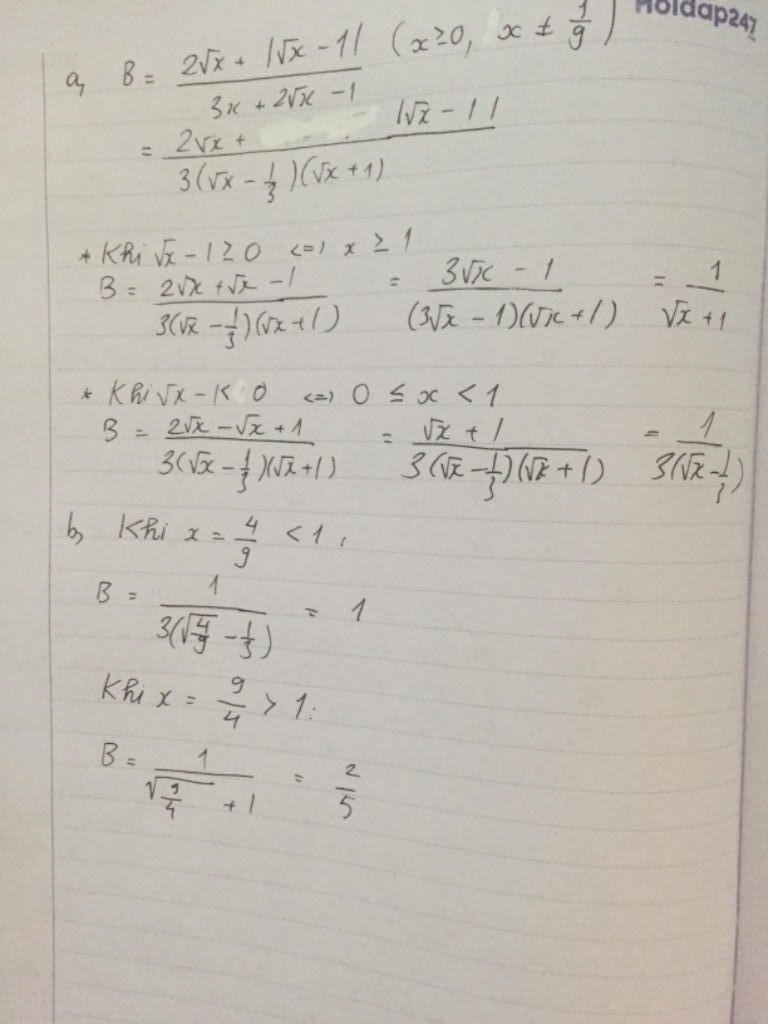 Hoidap247
a, B = (2√x + |√x - 1|)/(3x + 2√x - 1) (x ≥ 0, x ≠ 1/9)
= (2√x + |√x - 1|)/(3(√x - 1/3)(√x + 1))
* Khi √x - 1 ≥ 0 <=> x ≥ 1
B = (2√x + √x - 1)/(3(√x - 1/3)(√x + 1)) = (3√x - 1)/((3√x - 1)(√x + 1)) = 1/(√x + 1)
* Khi √x - 1 < 0 <=> 0 ≤ x < 1
B = (2√x - √x + 1)/(3(√x - 1/3)(√x + 1)) = (√x + 1)/(3(√x - 1/3)(√x + 1)) = 1/(3(√x - 1/3))
b, Khi x = 4/9 < 1,
B = 1/(3(√(4/9) - 1/3)) = 1
Khi x = 9/4 > 1:
B = 1/(√(9/4) + 1) = 2/5